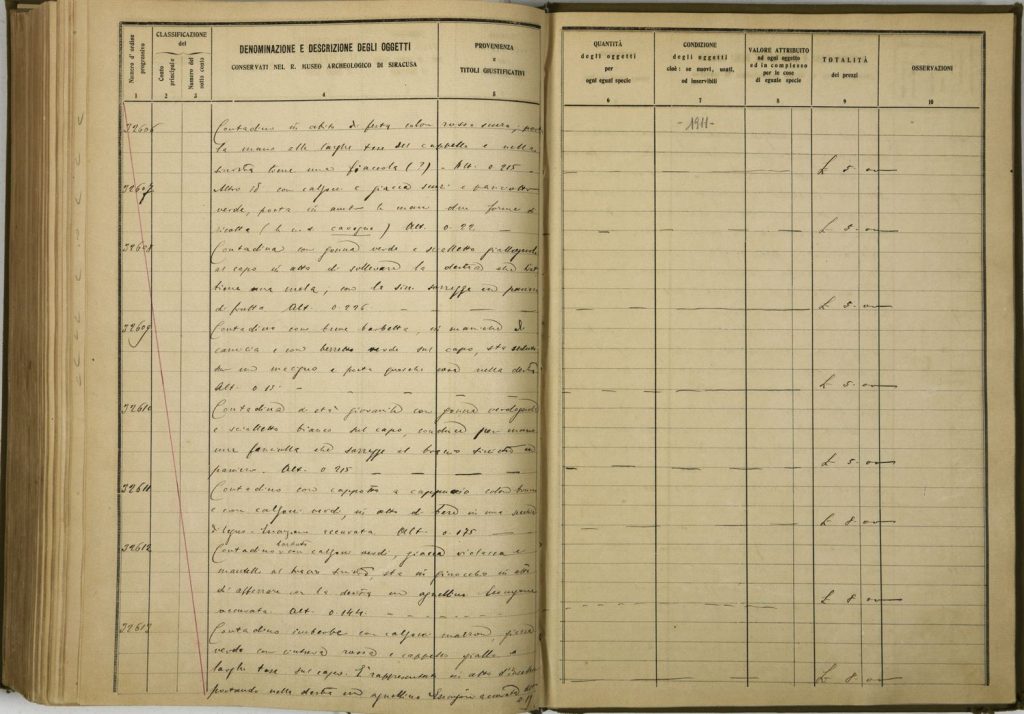 Numero d'ordine progressivo
CLASSIFICAZIONE
del
Conto principale
Numero del sotto conto
DENOMINAZIONE E DESCRIZIONE DEGLI OGGETTI
CONSERVATI NEL R. MUSEO ARCHEOLOGICO DI SIRACUSA
PROVENIENZA
E
TITOLI GIUSTIFICATIVI
1 2 3 4 5
32606 Contadino in abito di festa color rosso scuro,
la mano alle larghe tese del cappello e nella
sinistra tiene una fiaccola (?) - Alt. 0.215 -
32607 Altro id con calzoni e giacca scuri e panciotto
verde, porta in ambo le mani due forme di
ricotta ( ) Alt. 0.22 -
32608 Contadina con gonna verde e scialletto
al capo in atto di sollevare la destra che
tiene una mela, con la sin. sorregge un
di frutta Alt. 0.226 -
32609 Contadino con breve barbetta, in maniche di
camicia e con berretto verde sul capo, sta seduto
su un macigno e porta qualche cosa nella destra
Alt. 0.15. -
32610 Contadina di età giovanile con gonna
e scialletto bianco sul capo, conduce per mano
una fanciulla che sorregge al braccio sinistro un
paniere. Alt. 0.215 -
32611 Contadino con cappotto a cappuccio color bruno
e con calzoni verdi, in atto di bere in una
di legno - accurata Alt. 0.175 -
32612 Contadino barbato con calzoni verdi, giacca violacea e
mantello al braccio sinistro, sta in ginocchio in atto
di afferrare con la destra un agnellino. Esecuzione
accurata. Alt. 0.144. -
32613 Contadino imberbe con calzoni marron, giacca
verde con cintura rossa e cappello giallo a
larghe tese sul capo. È rappresentato in atto
portando nella destra un agnellino. Esecuzione accurata Alt.
QUANTITÀ
degli oggetti
per
ogni egual specie
CONDIZIONE
degli oggetti
cioè: se nuovi, usati,
od inservibili
VALORE ATTRIBUITO
ad ogni oggetto
od in complesso
per le cose
di eguale specie
TOTALITÀ
dei prezzi
OSSERVAZIONI
6 7 8 9 10
- 1911 -
£ 5. 00
£ 5. 00
£ 5. 00
£ 5. 00
£ 5. 00
£ 8. 00
£ 8. 00
£ 8. 00